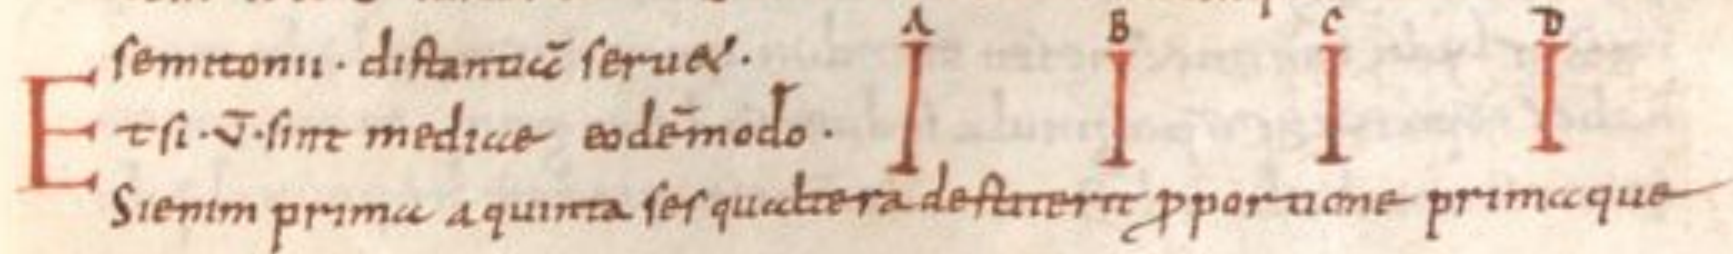 A B C D
semitonii · distantiā seruet ·
Et si · v̄ · sint mediae eodē modo ·
Si enim prima a quinta sesqualtera destiterit ꝓportione primaque